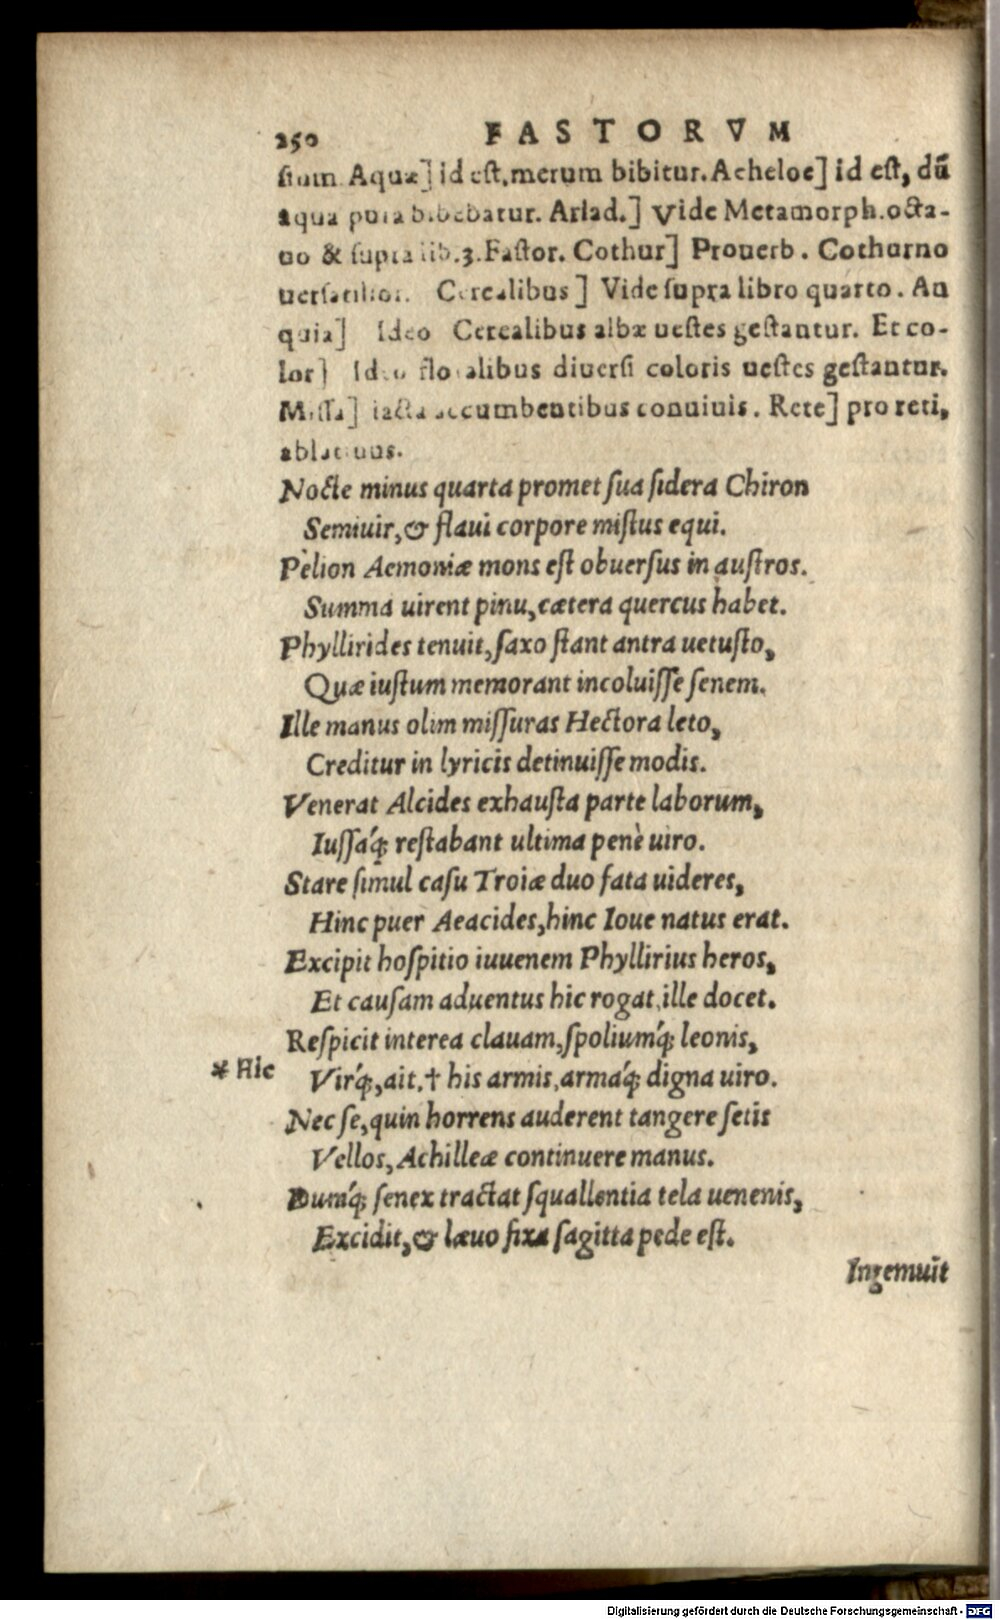 250 FASTORVM
sium. Aquæ] id est, merum bibitur. Acheloe] id est, dū
aqua pura bibebatur. Ariad.] Vide Metamorph. octa-
uo & supra lib. 3. Fastor. Cothur] Prouerb. Cothurno
uersatilior. Cerealibus] Vide supra libro quarto. An
quia] Ideo Cerealibus albæ uestes gestantur. Et co-
lor] Ideo floralibus diuersi coloris uestes gestantur.
Missa] iacta accumbentibus conuiuis. Rete] pro reti,
ablatiuus.
Nocte minus quarta promet sua sidera Chiron
Semiuir, & flaui corpore mistus equi.
Pèlion Aemoniæ mons est obuersus in austros.
Summa uirent pinu, cætera quercus habet.
Phyllirides tenuit, saxo stant antra uetusto,
Quæ iustum memorant incoluisse senem.
Ille manus olim missuras Hectora leto,
Creditur in lyricis detinuisse modis.
Venerat Alcides exhausta parte laborum,
Iussáq; restabant ultima penè uiro.
Stare simul casu Troiæ duo fata uideres,
Hinc puer Aeacides, hinc Ioue natus erat.
Excipit hospitio iuuenem Phyllirius heros,
Et causam aduentus hic rogat, ille docet.
Respicit interea clauam, spoliumq́; leonis,
* Hic Virq́;, ait, † his armis, armáq; digna uiro.
Nec se, quin horrens auderent tangere setis
Vellos, Achilleæ continuere manus.
Dumq́; senex tractat squallentia tela uenenis,
Excidit, & læuo fixa sagitta pede est.
Ingemuit
Digitalisierung gefördert durch die Deutsche Forschungsgemeinschaft - DFG